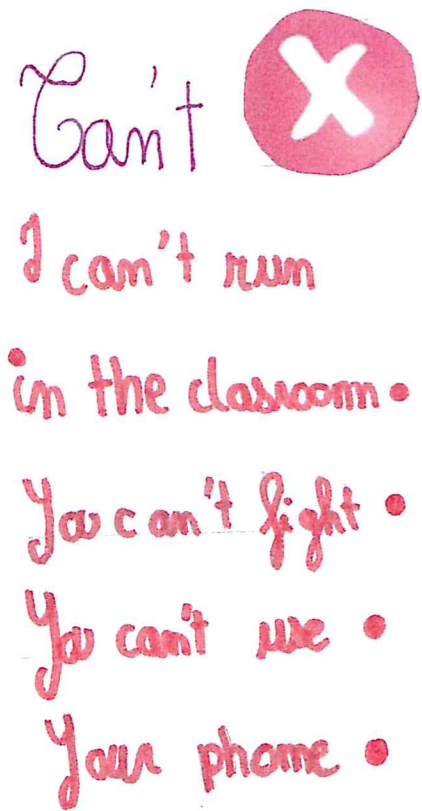 Can't X
I can't run
in the clasroom.
You can't fight.
You can't use.
Your phone.